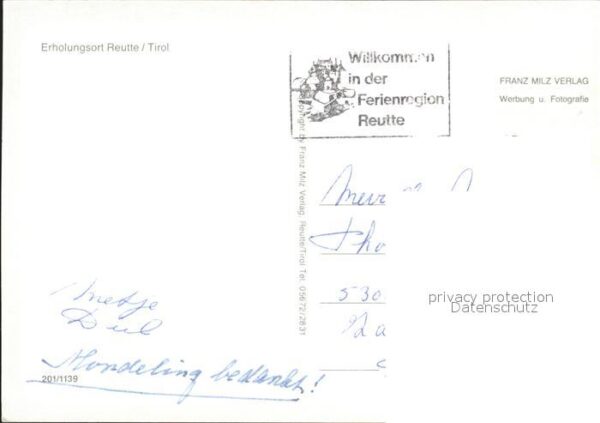 Erholungsort Reutte / Tirol
Willkommen
in der
Ferienregion
Reutte
FRANZ MILZ VERLAG
Werbung u. Fotografie
Copyright by Franz Milz Verlag, Reutte/Tirol Tel. 05672/2831
Mevr
Tho
530
privacy protection
Datenschutz
Metje
Mondeling bedankt!
201/1139